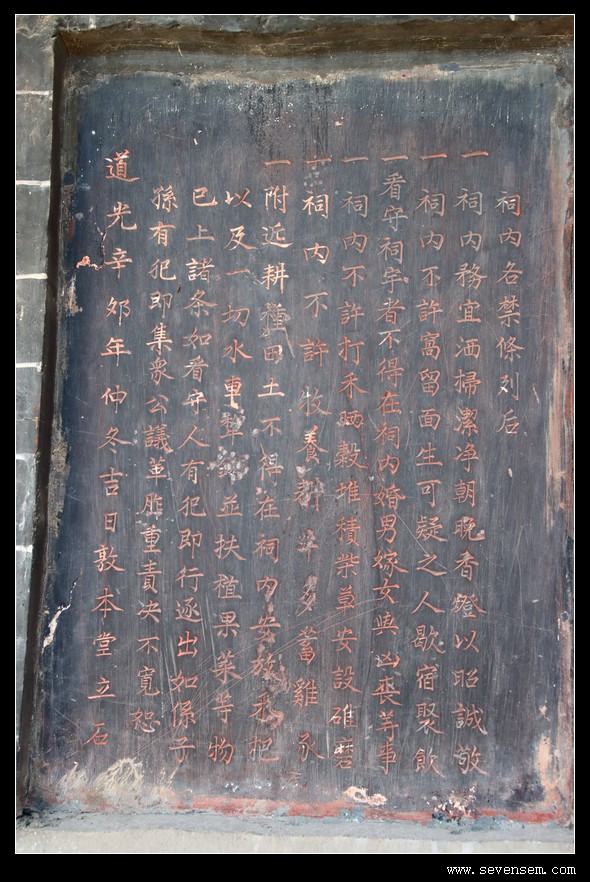 祠内各禁條列后
一祠内務宜洒掃潔净朝晚香燈以昭誠敬
一祠内不許窩留面生可疑之人歇宿聚飲
一看守祠宇者不得在祠内婚男嫁女與凶喪等事
一祠内不許打禾晒穀堆積柴草安設碓磨
一祠内不許牧養耕牛多蓄雞豕
一附近耕種田土不得在祠内安放禾把
以及一切水車犂並扶植果菜等物
已上諸条如看守人有犯即行逐出如係子
孫有犯即集衆公議革胙重責决不寬恕
道光辛卯年仲冬吉日敦本堂立石
www.sevensem.com